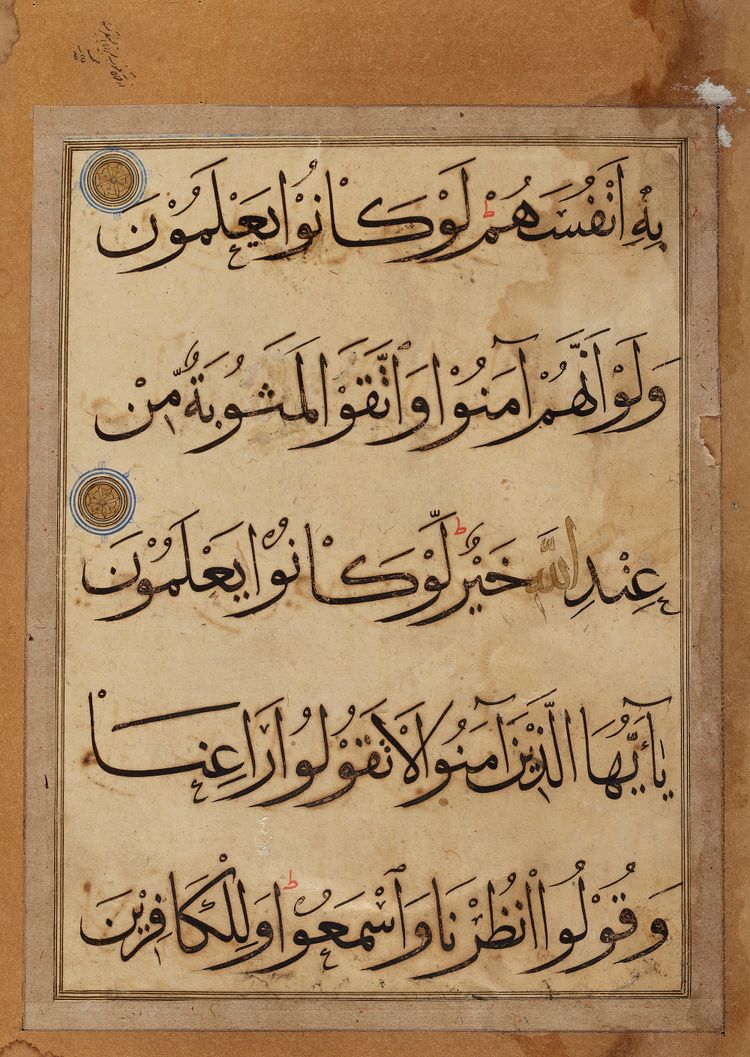 بِهِ اَنْفُسَهُمْ ط لَوْ كَانُوْا يَعْلَمُوْنَ
وَلَوْ اَنَّهُمْ آمَنُوْا وَاتَّقَوْا لَمَثُوْبَةٌ مِّنْ
عِنْدِ اللّٰهِ خَيْرٌ ط لَّوْ كَانُوْا يَعْلَمُوْنَ
يٰآَيُّهَا الَّذِيْنَ آمَنُوْا لَا تَقُوْلُوْا رَاعِنَا
وَقُوْلُوا انْظُرْنَا وَاسْمَعُوْا ط وَلِلْكَافِرِيْنَ